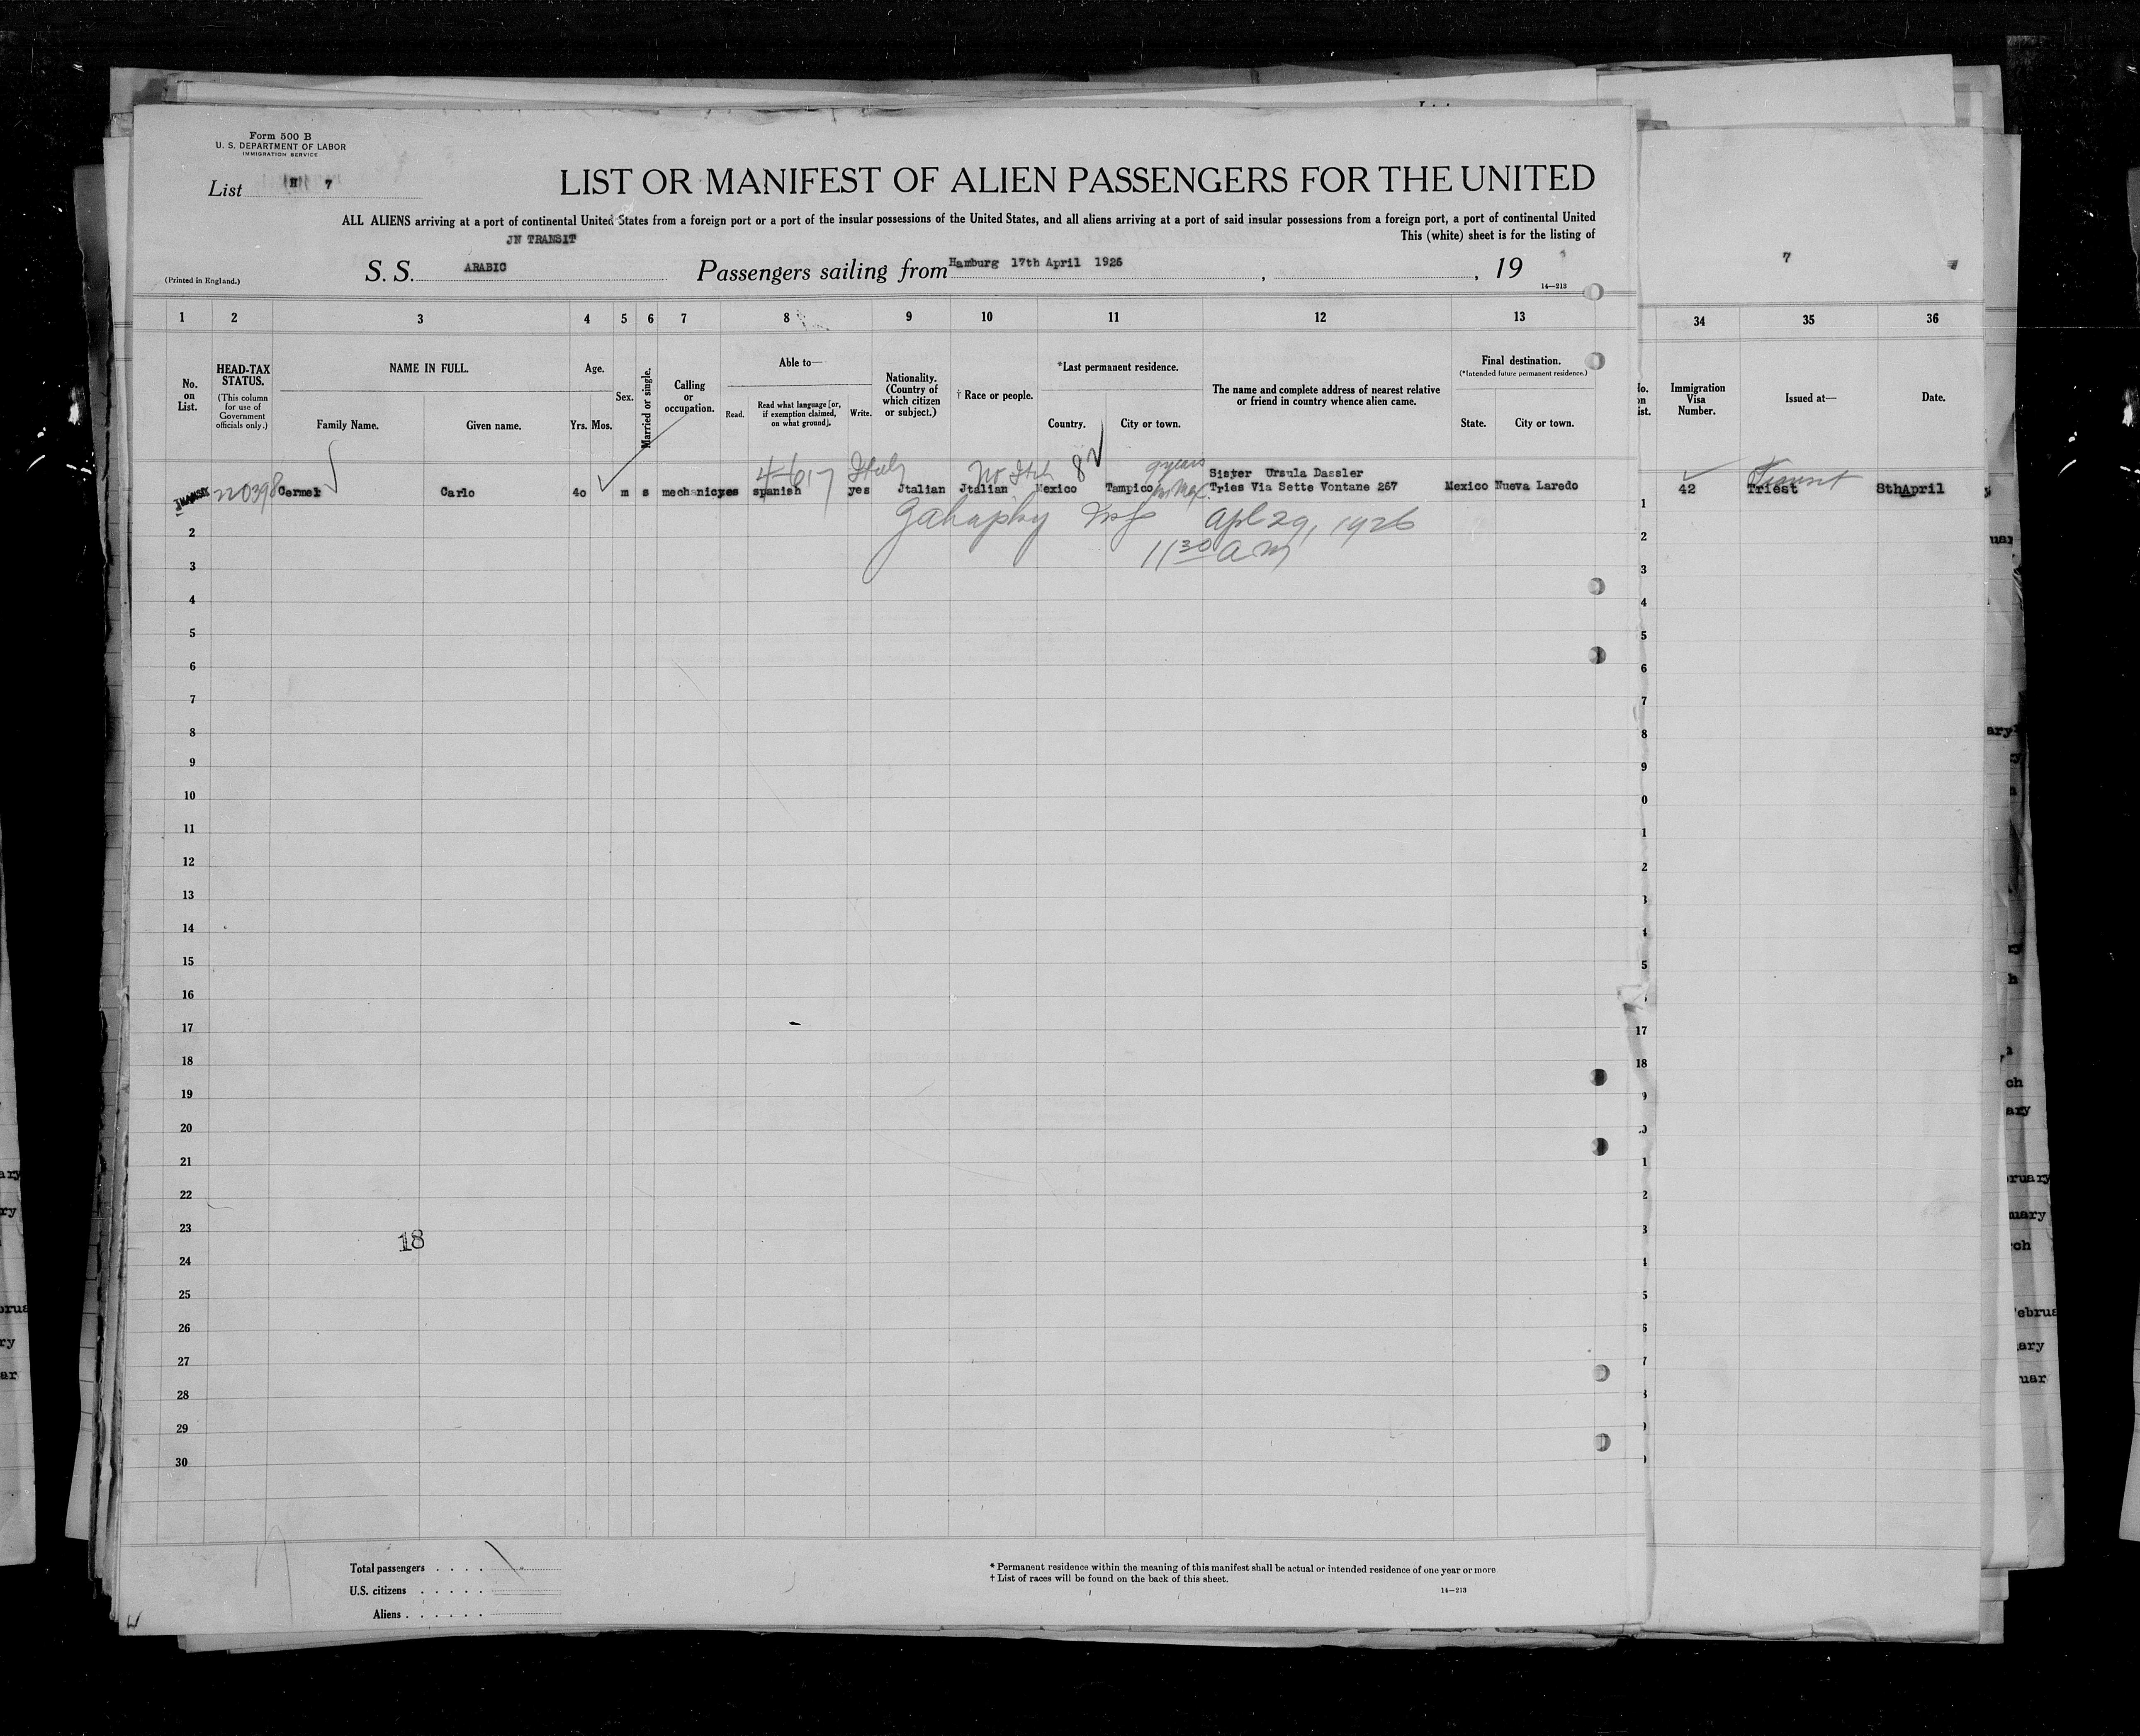 Form 500 B
U. S. DEPARTMENT OF LABOR
IMMIGRATION SERVICE
List (H) 7
LIST OR MANIFEST OF ALIEN PASSENGERS FOR THE UNITED
ALL ALIENS arriving at a port of continental United States from a foreign port or a port of the insular possessions of the United States, and all aliens arriving at a port of said insular possessions from a foreign port, a port of continental United
JN TRANSIT
This (white) sheet is for the listing of
(Printed in England.)
S. S. ARABIC Passengers sailing from Hamburg 17th April 1926 , , 19
14—213
7
1 2 3 4 5 6 7 8 9 10 11 12 13 34 35 36
No. on List.
HEAD-TAX STATUS.
(This column for use of Government officials only.)
NAME IN FULL.
Family Name. Given name.
Age.
Yrs. Mos.
Sex.
Married or single.
Calling or occupation.
Able to—
Read.
Read what language [or, if exemption claimed, on what ground].
Write.
Nationality. (Country of which citizen or subject.)
† Race or people.
*Last permanent residence.
Country. City or town.
The name and complete address of nearest relative or friend in country whence alien came.
Final destination.
(*Intended future permanent residence.)
State. City or town.
Immigration Visa Number.
Issued at—
Date.
4-617 Italy No Ital 8 9 years
Sister Ursula Dassler
Transit
TRANSIT 220398 Cermel Carlo 40 m s mechanic yes spanish yes Jtalian Jtalian Mexico Tampico Tries Via Sette Vontane 267 Mexico Nueva Laredo 1 42 Triest 8thApril
Apl 29, 1926
11 30 AM
2
3
4
5
6
7
8
9
10
11
12
13
14
15
16
17
18
19
20
21
22
23
18
24
25
26
27
28
29
30
Total passengers
U.S. citizens
Aliens
* Permanent residence within the meaning of this manifest shall be actual or intended residence of one year or more
† List of races will be found on the back of this sheet.
14—213